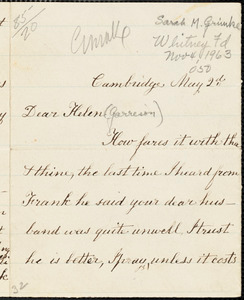 85/20
Sarah M. Grimké
Whitney Fd
Nov 4, 1963
050
Cambridge, May 2d
Dear Helen (Garrison)
How fares it with thee
& thine, the last time I heard from
Frank he said your dear hus-
band was quite unwell. I trust
he is better, & pray, unless it costs
32